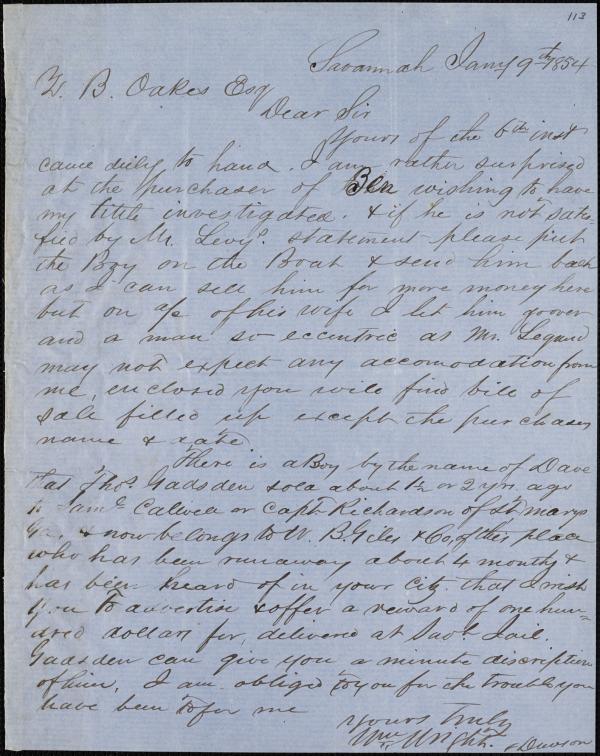 113
Savannah Jany 9th 1854
Z. B. Oakes Esq
Dear Sir
Yours of the 6th inst
came duly to hand. I am rather surprised
at the purchaser of Ben wishing to have
my title investigated. & if he is not satis-
fied by Mr. Levys. statement please put
the Boy on the Boat & send him back
as I can sell him for more money here
but on a/c of his wife I let him go over
and a man so eccentric as Mr. Legard
may not expect any accomodation from
me, enclosed you will find bill of
sale filled up except the purchasers
name & date
There is a Boy by the name of Dave
that Thos. Gadsden sold about 1½ or 2 yrs ago
to Saml. or Capt Richardson of St marys
Ga, & now belongs to W. B. Giles & Co, of this place
who has been runaway about 4 months &
has been heard of in your City. that I wish
you to advertise & offer a reward of one hun-
dred dollars for, delivered at Savh Jail.
Gadsden can give you a minute discription
of him. I am obliged to you for the trouble you
have been to for me
Yours truly
Wm Wright.
& Dawson